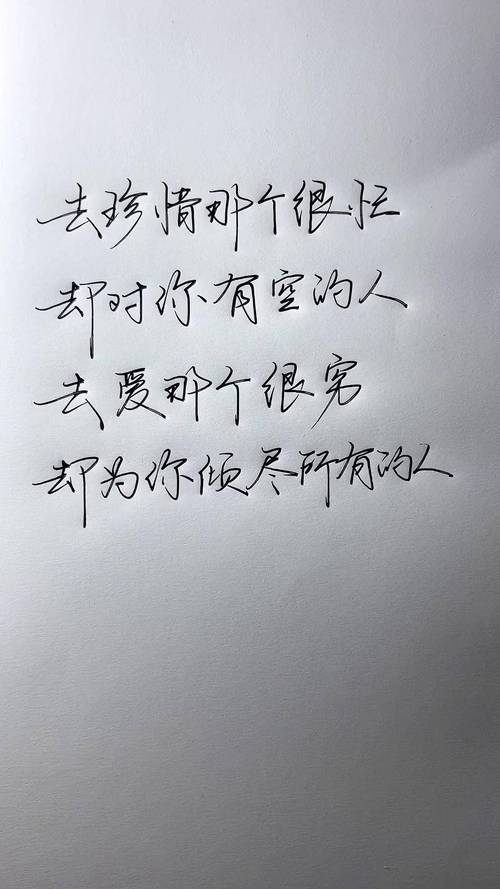 去珍惜那个很忙
却对你有空的人
去爱那个很穷
却为你倾尽所有的人